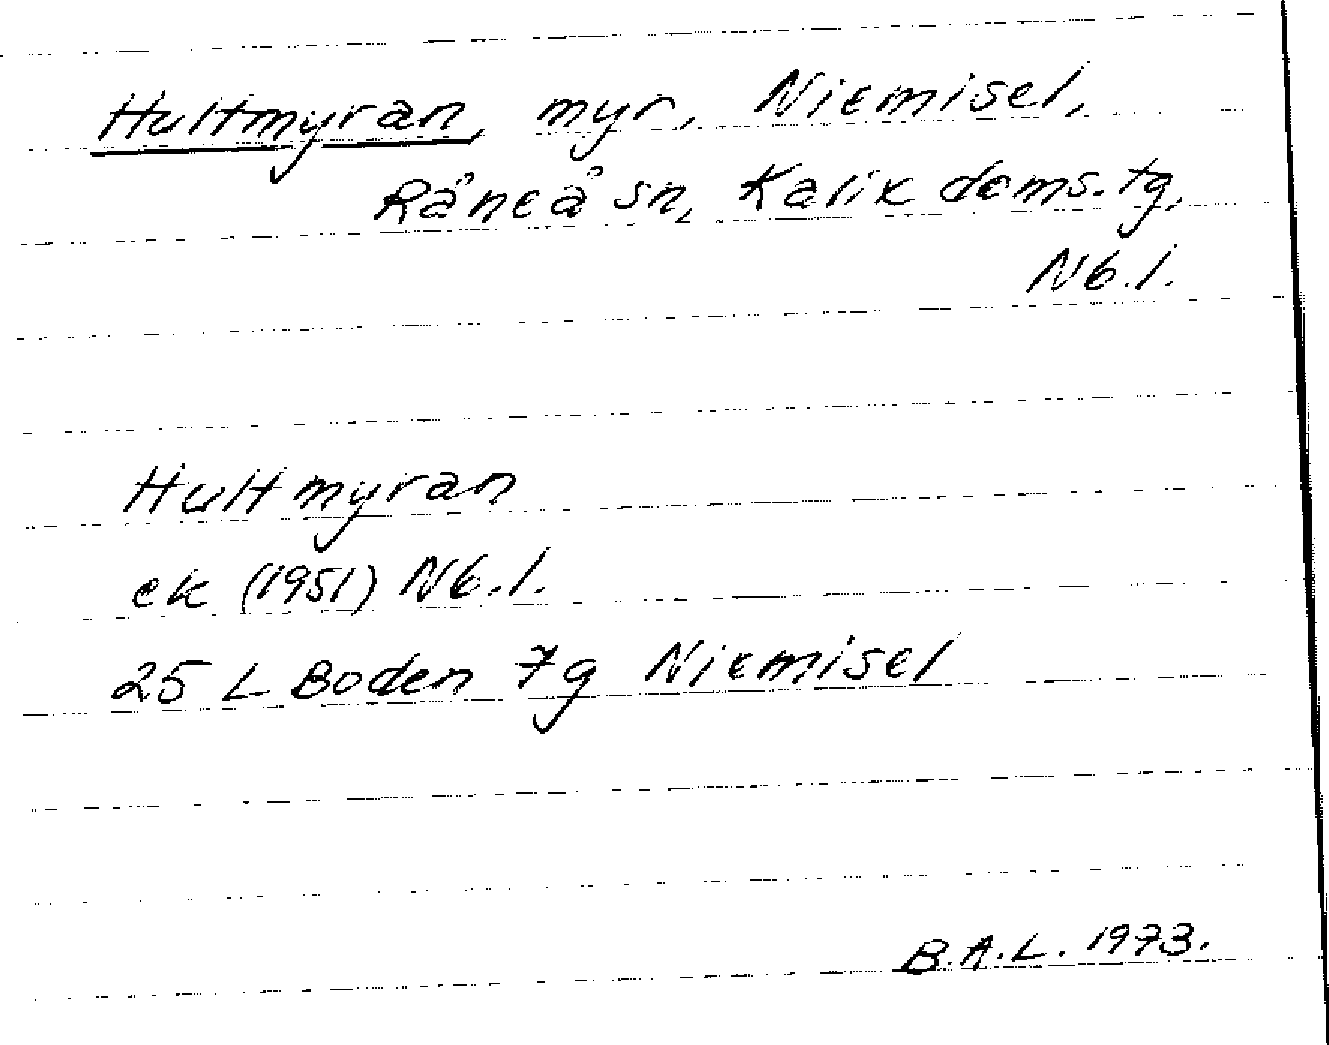 Hultmyran, myr, Niemisel,
Råneå sn, Kalix doms. tg,
Nb. l.
Hultmyran
ek (1951) Nb. l.
25 L Boden 7g Niemisel
B.A.L. 1973.